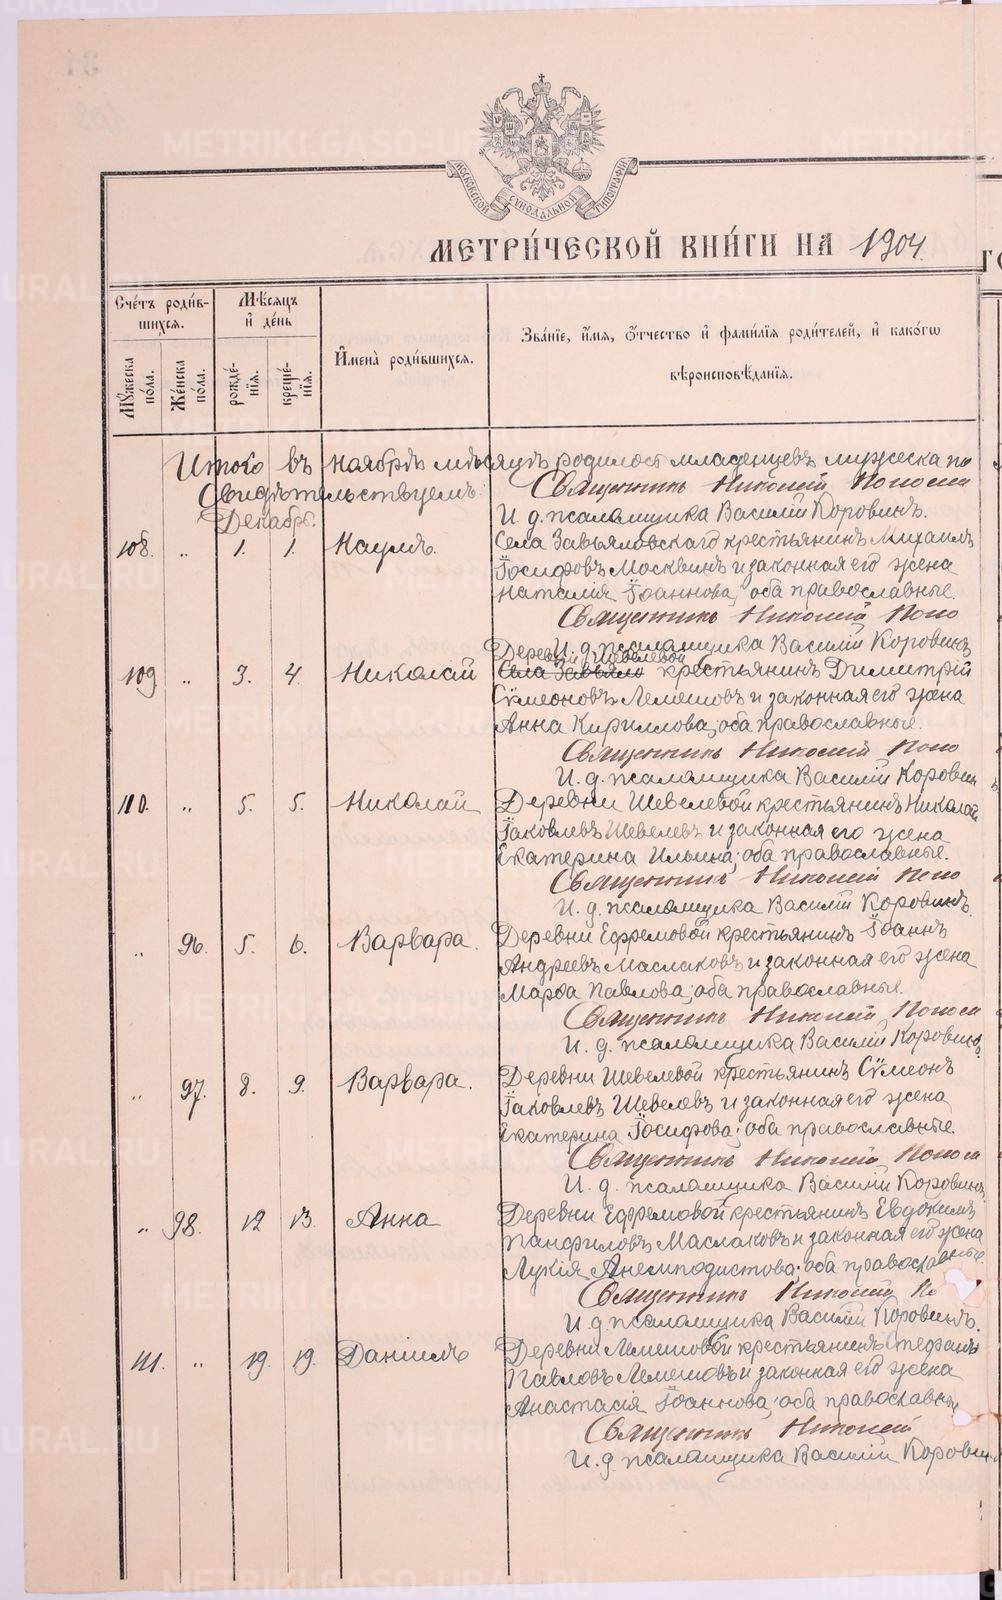 МОСКОВСКОЙ СѴНОДАЛЬНОЙ ТИПОГРАФІИ
МЕТРИ́ЧЕСКОЙ КНИ́ГИ НА 1904
Сче́тъ роди́в-
шихся.
Мѣ́сяцъ
и҆ де́нь
И҆мена̀ роди́вшихся.
Зва́нїе, и҆́мя, ѻ҆́тчество и҆ фами́лїя роди́телей, и҆ како́гѡ
вѣроисповѣ́данїя.
Мꙋ́жеска по́ла.
Же́нска по́ла.
рожде́-нїя.
креще́-нїя.
Итого въ ноябрѣ мѣсяцѣ родилось младенцевъ мужеска по
Свидѣтельствуемъ: Священникъ Николай
И. д. псаломщика Василій Коровинъ.
Декабрь.
108. „ 1. 1. Наумъ. Села Завьяловскаго крестьянинъ Михаилъ
Іосифовъ Москвинъ и законная его жена
Наталія Іоаннова, оба православные.
Священникъ Николай Попо
И. д. псаломщика Василій Коровинъ
Деревни Шевелевой
109 „ 3. 4. Николай Села Завьяло крестьянинъ Димитрій
Сѵмеоновъ Лемешовъ и законная его жена
Анна Кириллова, оба православные.
Священникъ Николай Попо
И. д. псаломщика Василій Коровин
110. „ 5. 5. Николай Деревни Шевелевой крестьянинъ Николай
Іаковлевъ Шевелевъ и законная его жена
Екатерина Ильина, оба православные.
Священникъ Николай Попо
И. д. псаломщика Василій Коровинъ
„ 96. 5. 6. Варвара. Деревни Ефремовой крестьянинъ Іоаннъ
Андреевъ Маслаковъ и законная его жена
Марѳа Павлова, оба православные.
Священникъ Николай
И. д. псаломщика Василій Коровинъ
„ 97. 8. 9. Варвара. Деревни Шевелевой крестьянинъ Сѵмеонъ
Іаковлевъ Шевелевъ и законная его жена
Екатерина Іосифова, оба православные.
Священникъ Николай
И. д. псаломщика Василій Коровинъ.
„ 98. 12 13. Анна Деревни Ефремовой крестьянинъ Евдокимъ
Панфиловъ Маслаковъ и законная его жена
Лукія Анемподистова, оба православные.
Священникъ Николай По
И. д. псаломщика Василій Коровинъ.
111. „ 19. 19. Даніилъ Деревни Лемешовой крестьянинъ Стефанъ
Павловъ Лемешовъ и законная его жена
Анастасія Іоаннова, оба православны
Священникъ Николай
И. д. псаломщика Василій Коровин
METRIKI.GASO-URAL.RU